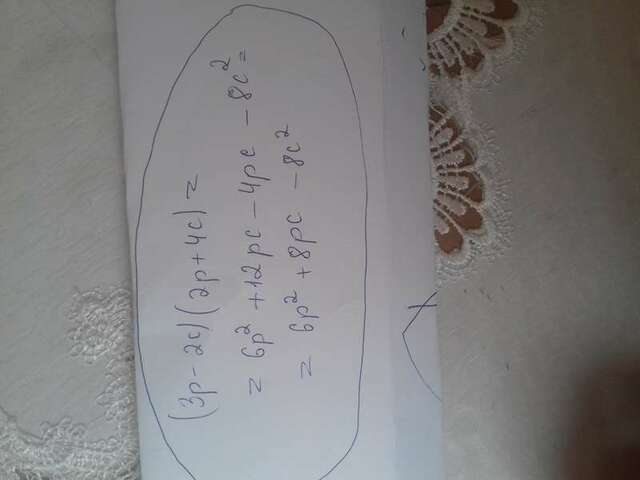 (3p-2c)(2p+4c)=
=6p²+12pc-4pc-8c²=
=6p²+8pc-8c²